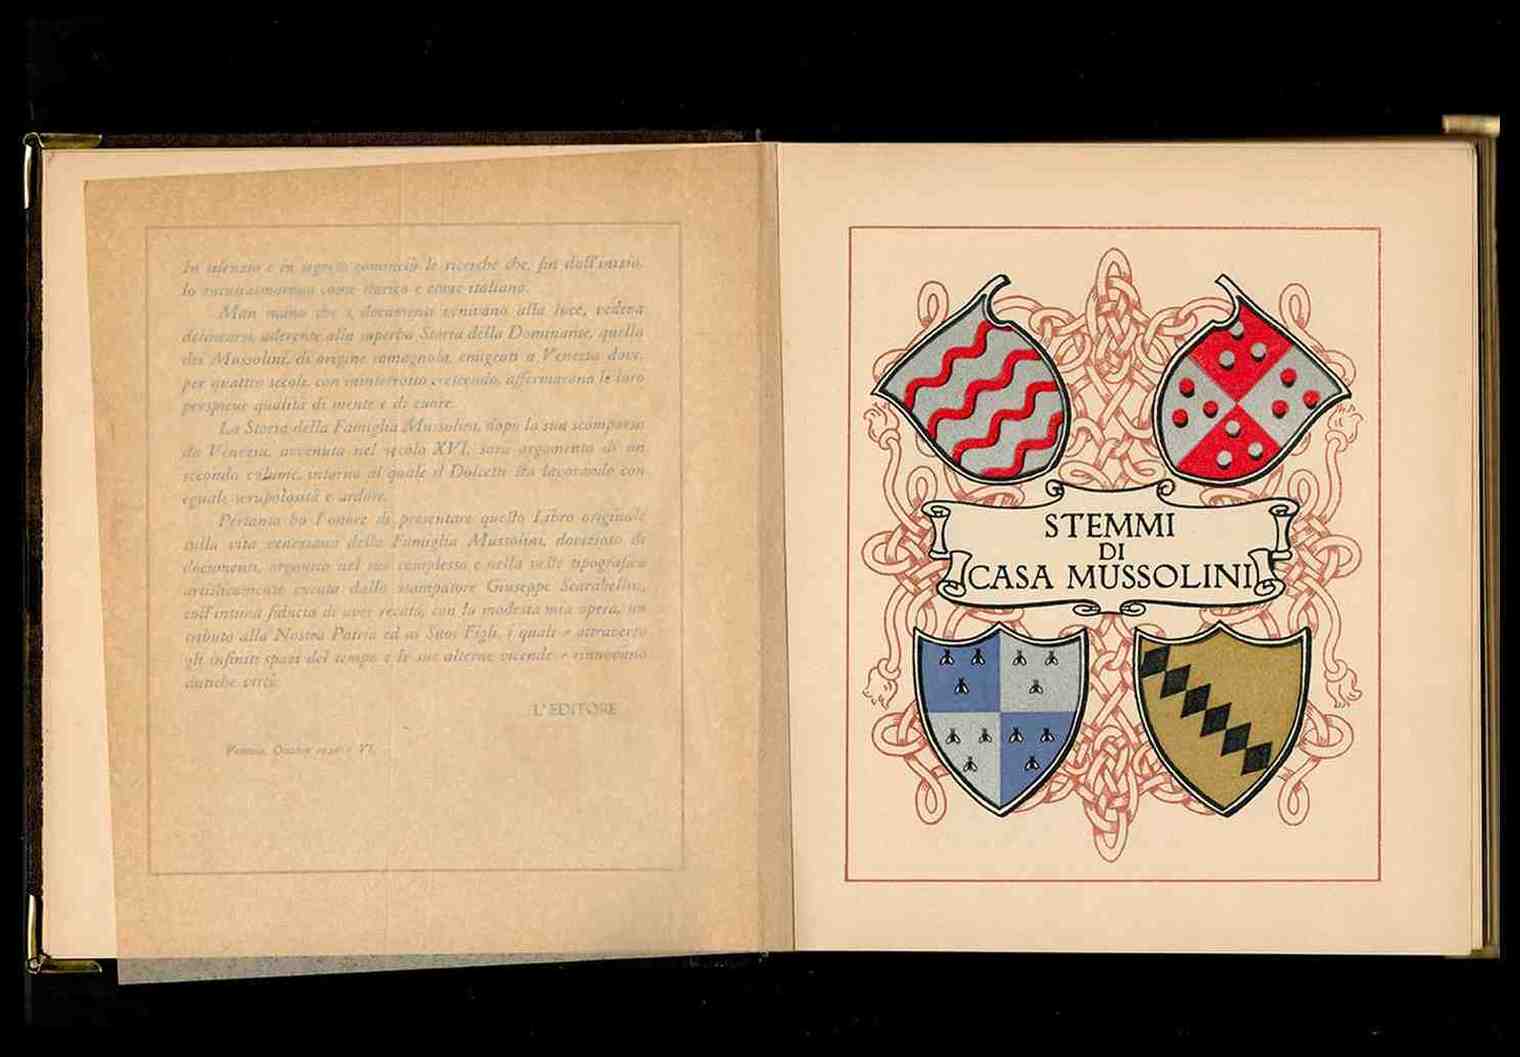 In silenzio e in segreto cominciò le ricerche che, fin dall'inizio,
lo entusiasmarono come storico e come italiano.
Man mano che i documenti venivano alla luce, vedeva
delinearsi, aderente alla superba Storia della Dominante, quella
dei Mussolini, di origine romagnola, emigrati a Venezia dove,
per quattro secoli, con ininterrotto crescendo, affermarono le loro
perspicue qualità di mente e di cuore.
La Storia della Famiglia Mussolini, dopo la sua scomparsa
da Venezia, avvenuta nel secolo XVI, sarà argomento di un
secondo volume, intorno al quale il Dolcetti sta lavorando con
eguale scrupolosità e ardore.
Pertanto ho l'onore di presentare questo Libro originale
sulla vita veneziana della Famiglia Mussolini, doviziato di
documenti, organico nel suo complesso e nella veste tipografica
artisticamente curata dallo stampatore Giuseppe Scarabellin,
coll'intima fiducia di aver recato, con la modesta mia opera, un
tributo alla Nostra Patria ed ai Suoi Figli, i quali - attraverso
gli infiniti spazi del tempo e le sue alterne vicende - rinnovano
antiche virtù.
L'EDITORE
Venezia, Ottobre VI.
STEMMI
DI
CASA MUSSOLINI